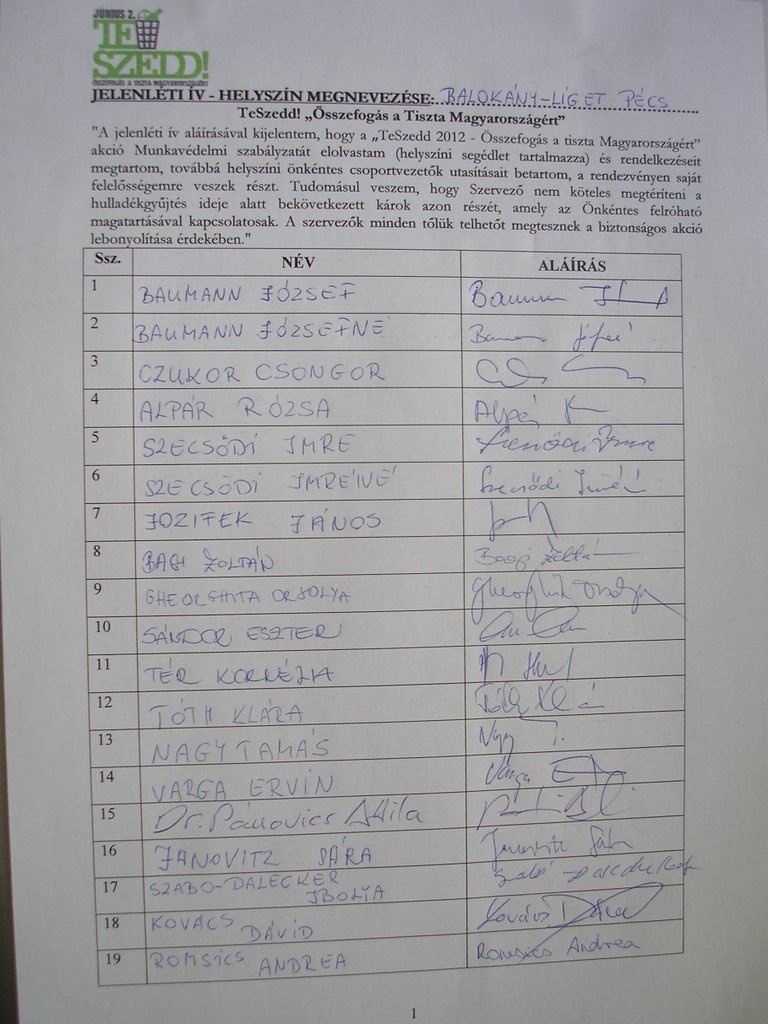 JÚNIUS 2.
TE
SZEDD!
ÖSSZEFOGÁS A TISZTA MAGYARORSZÁGÉRT
JELENLÉTI ÍV - HELYSZÍN MEGNEVEZÉSE: BALOKÁNY-LIGET PÉCS
TeSzedd! „Összefogás a Tiszta Magyarországért”
"A jelenléti ív aláírásával kijelentem, hogy a „TeSzedd 2012 - Összefogás a tiszta Magyarországért”
akció Munkavédelmi szabályzatát elolvastam (helyszíni segédlet tartalmazza) és rendelkezéseit
megtartom, továbbá helyszíni önkéntes csoportvezetők utasításait betartom, a rendezvényen saját
felelősségemre veszek részt. Tudomásul veszem, hogy Szervező nem köteles megtéríteni a
hulladékgyűjtés ideje alatt bekövetkezett károk azon részét, amely az Önkéntes felróható
magatartásával kapcsolatosak. A szervezők minden tőlük telhetőt megtesznek a biztonságos akció
lebonyolítása érdekében."
Ssz. NÉV ALÁÍRÁS
1 BAUMANN JÓZSEF
2 BAUMANN JÓZSEFNÉ
3 CZUKOR CSONGOR
4 ALPÁR RÓZSA
5 SZECSŐDI IMRE Szecsődi Imre
6 SZECSŐDI IMRÉNÉ
7 JOZIFEK JÁNOS
8 BAGI ZOLTÁN Bagi Zoltán
9 GHEORGHITA ORSOLYA Gheorghita Orsolya
10 SÁNDOR ESZTER
11 TÉR KORNÉLIA
12 TÓTH KLÁRA Tóth Klára
13 NAGY TAMÁS Nagy T.
14 VARGA ERVIN Varga
15 Dr. Pánovics Attila
16 JANOVITZ SÁRA Janovitz Sára
17 SZABO-DALECKER
IBOLYA
18 KOVÁCS DÁVID Kovács Dávid
19 ROMSICS ANDREA Romsics Andrea
1